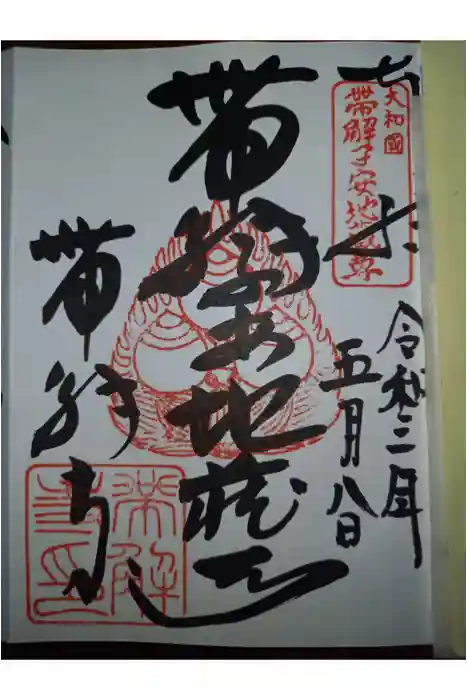 奉拝
大和國
帯解子安地蔵尊
令和二年
五月八日
帯解子安地蔵
帯解寺
帯解
寺印